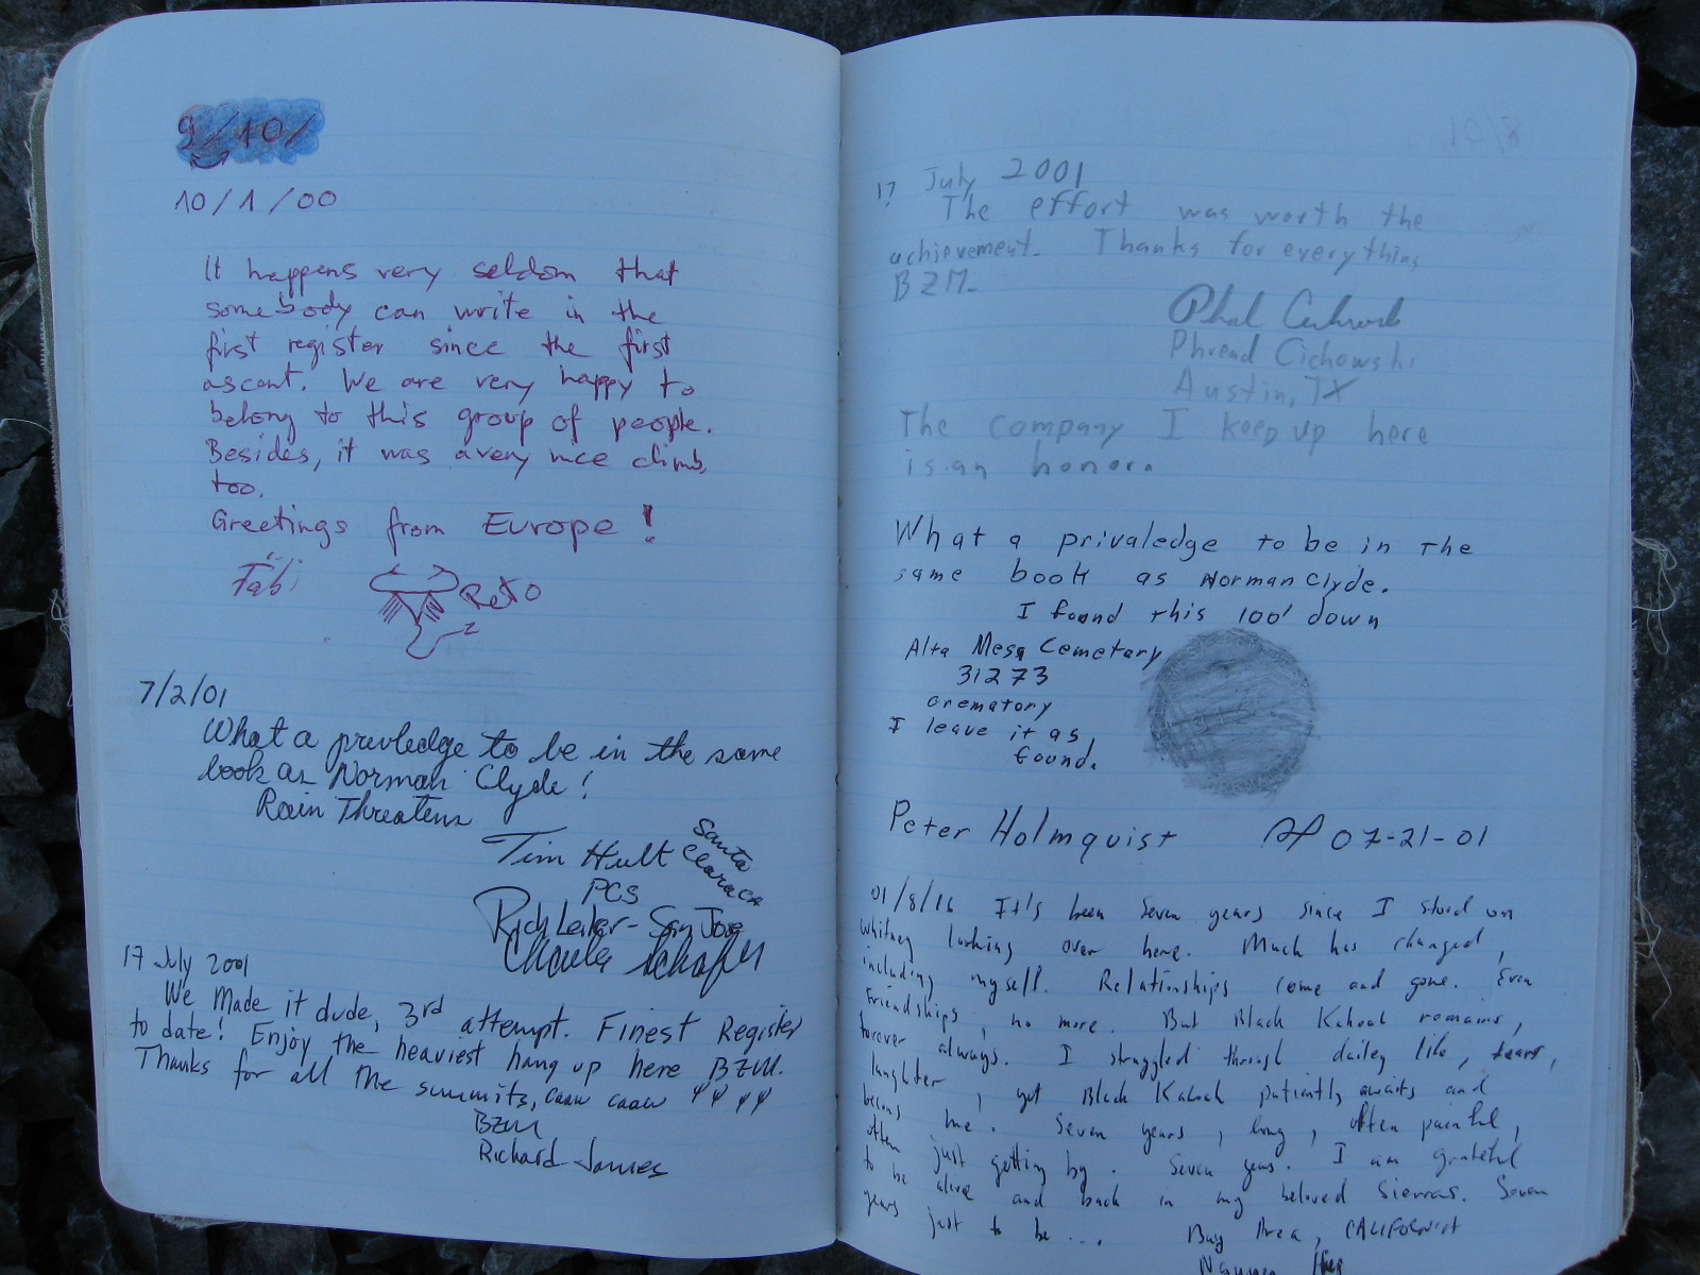 9/10/
10/1/00
It happens very seldom that
somebody can write in the
first register since the first
ascent. We are very happy to
belong to this group of people.
Besides, it was a very nice climb,
too.
Greetings from Europe!
Fäbi
Reto
7/2/01
What a priviledge to be in the same
book as Norman Clyde!
Rain Threatens
Tim Hult Santa Clara CA
PCS
Rich Leiker - San Jose
Charles Schafer
17 July 2001
We Made it dude, 3rd attempt. Finest Register
to date! Enjoy the heaviest hang up here BZM.
Thanks for all the summits, caaw caaw
BZM
Richard James
17 July 2001
The effort was worth the
achievement. Thanks for everything
BZM-
Phread Cichowski
Austin, TX
The company I keep up here
is an honor.
What a privaledge to be in the
same book as Norman Clyde.
I found this 100' down
Alta Mesa Cemetary
31273
crematory
I leave it as
found.
Peter Holmquist 07-21-01
01/8/16 It's been seven years since I stood on
Whitney looking over here. Much has changed,
including myself. Relationships come and gone. Even
friendships, no more. But Black Kaweah remains,
forever always. I struggled through dailey life, tears,
laughter, yet Black Kaweah patiently awaits and
becons me. Seven years, long, often painful,
often just getting by. Seven years. I am grateful
to be alive and back in my beloved Sierras. Seven
years just to be ...
Bay Area, CALIFORNIA